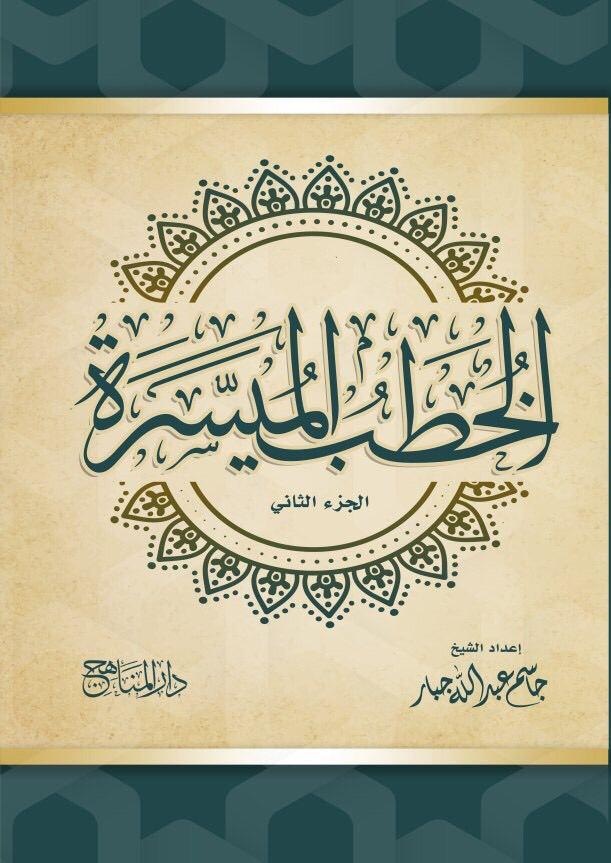 الخطب الميسّرة
الجزء الثاني
إعداد الشيخ
جاسم عبدالله جبار
دار المناهج